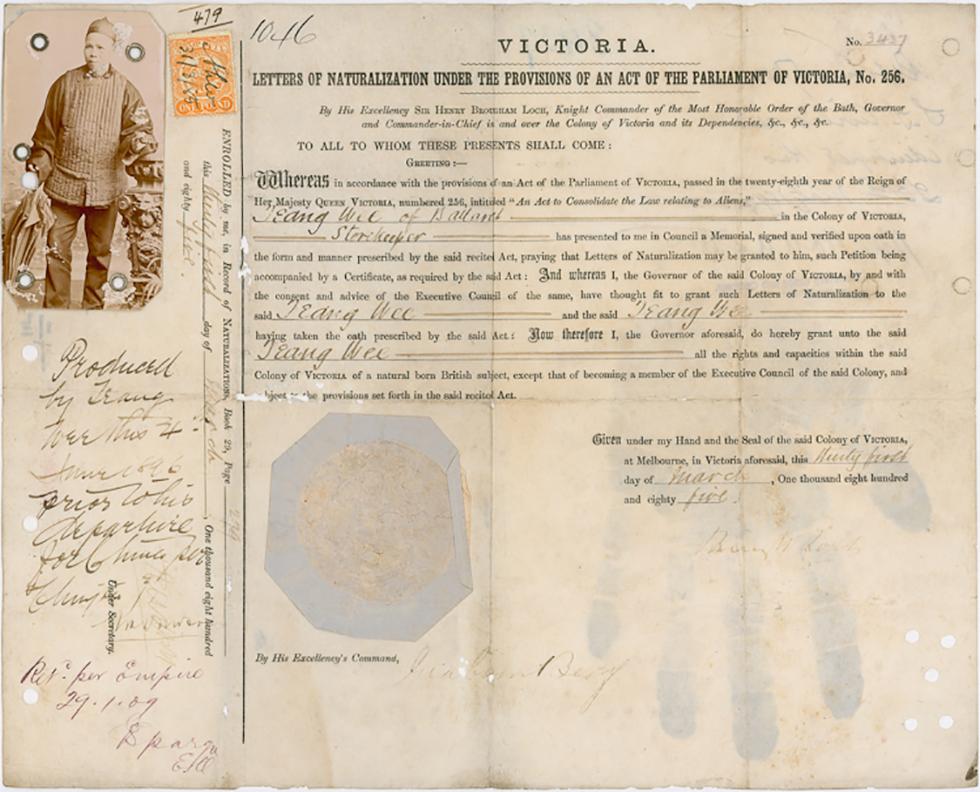 479
1046
31/3/85
VICTORIA.
No. 3437
LETTERS OF NATURALIZATION UNDER THE PROVISIONS OF AN ACT OF THE PARLIAMENT OF VICTORIA, No. 256.
By His Excellency SIR HENRY BROUGHAM LOCH, Knight Commander of the Most Honorable Order of the Bath, Governor
and Commander-in-Chief in and over the Colony of Victoria and its Dependencies, &c., &c., &c.
TO ALL TO WHOM THESE PRESENTS SHALL COME:
GREETING:—
Whereas in accordance with the provisions of an Act of the Parliament of VICTORIA, passed in the twenty-eighth year of the Reign of
Her Majesty QUEEN VICTORIA, numbered 256, intituled "An Act to Consolidate the Law relating to Aliens,"
Teang Wee of Ballarat in the Colony of VICTORIA,
Storekeeper has presented to me in Council a Memorial, signed and verified upon oath in
the form and manner prescribed by the said recited Act, praying that Letters of Naturalization may be granted to him, such Petition being
accompanied by a Certificate, as required by the said Act: And whereas I, the Governor of the said Colony of VICTORIA, by and with
the consent and advice of the Executive Council of the same, have thought fit to grant such Letters of Naturalization to the
said Teang Wee and the said Teang Wee
having taken the oath prescribed by the said Act: Now therefore I, the Governor aforesaid, do hereby grant unto the said
Teang Wee all the rights and capacities within the said
Colony of VICTORIA of a natural born British subject, except that of becoming a member of the Executive Council of the said Colony, and
subject to the provisions set forth in the said recited Act.
Given under my Hand and the Seal of the said Colony of VICTORIA,
at Melbourne, in Victoria aforesaid, this thirty first
day of March, One thousand eight hundred
and eighty five.
By His Excellency's Command,
ENROLLED by me, in Record of NATURALIZATIONS, Book 29, Page
this thirty first day of March, One thousand eight hundred
and eighty five.
Under Secretary.
Produced
by Teang
Wee this 4th
June
prior to his
departure
for China per
Ret. per Empire
29.1.09